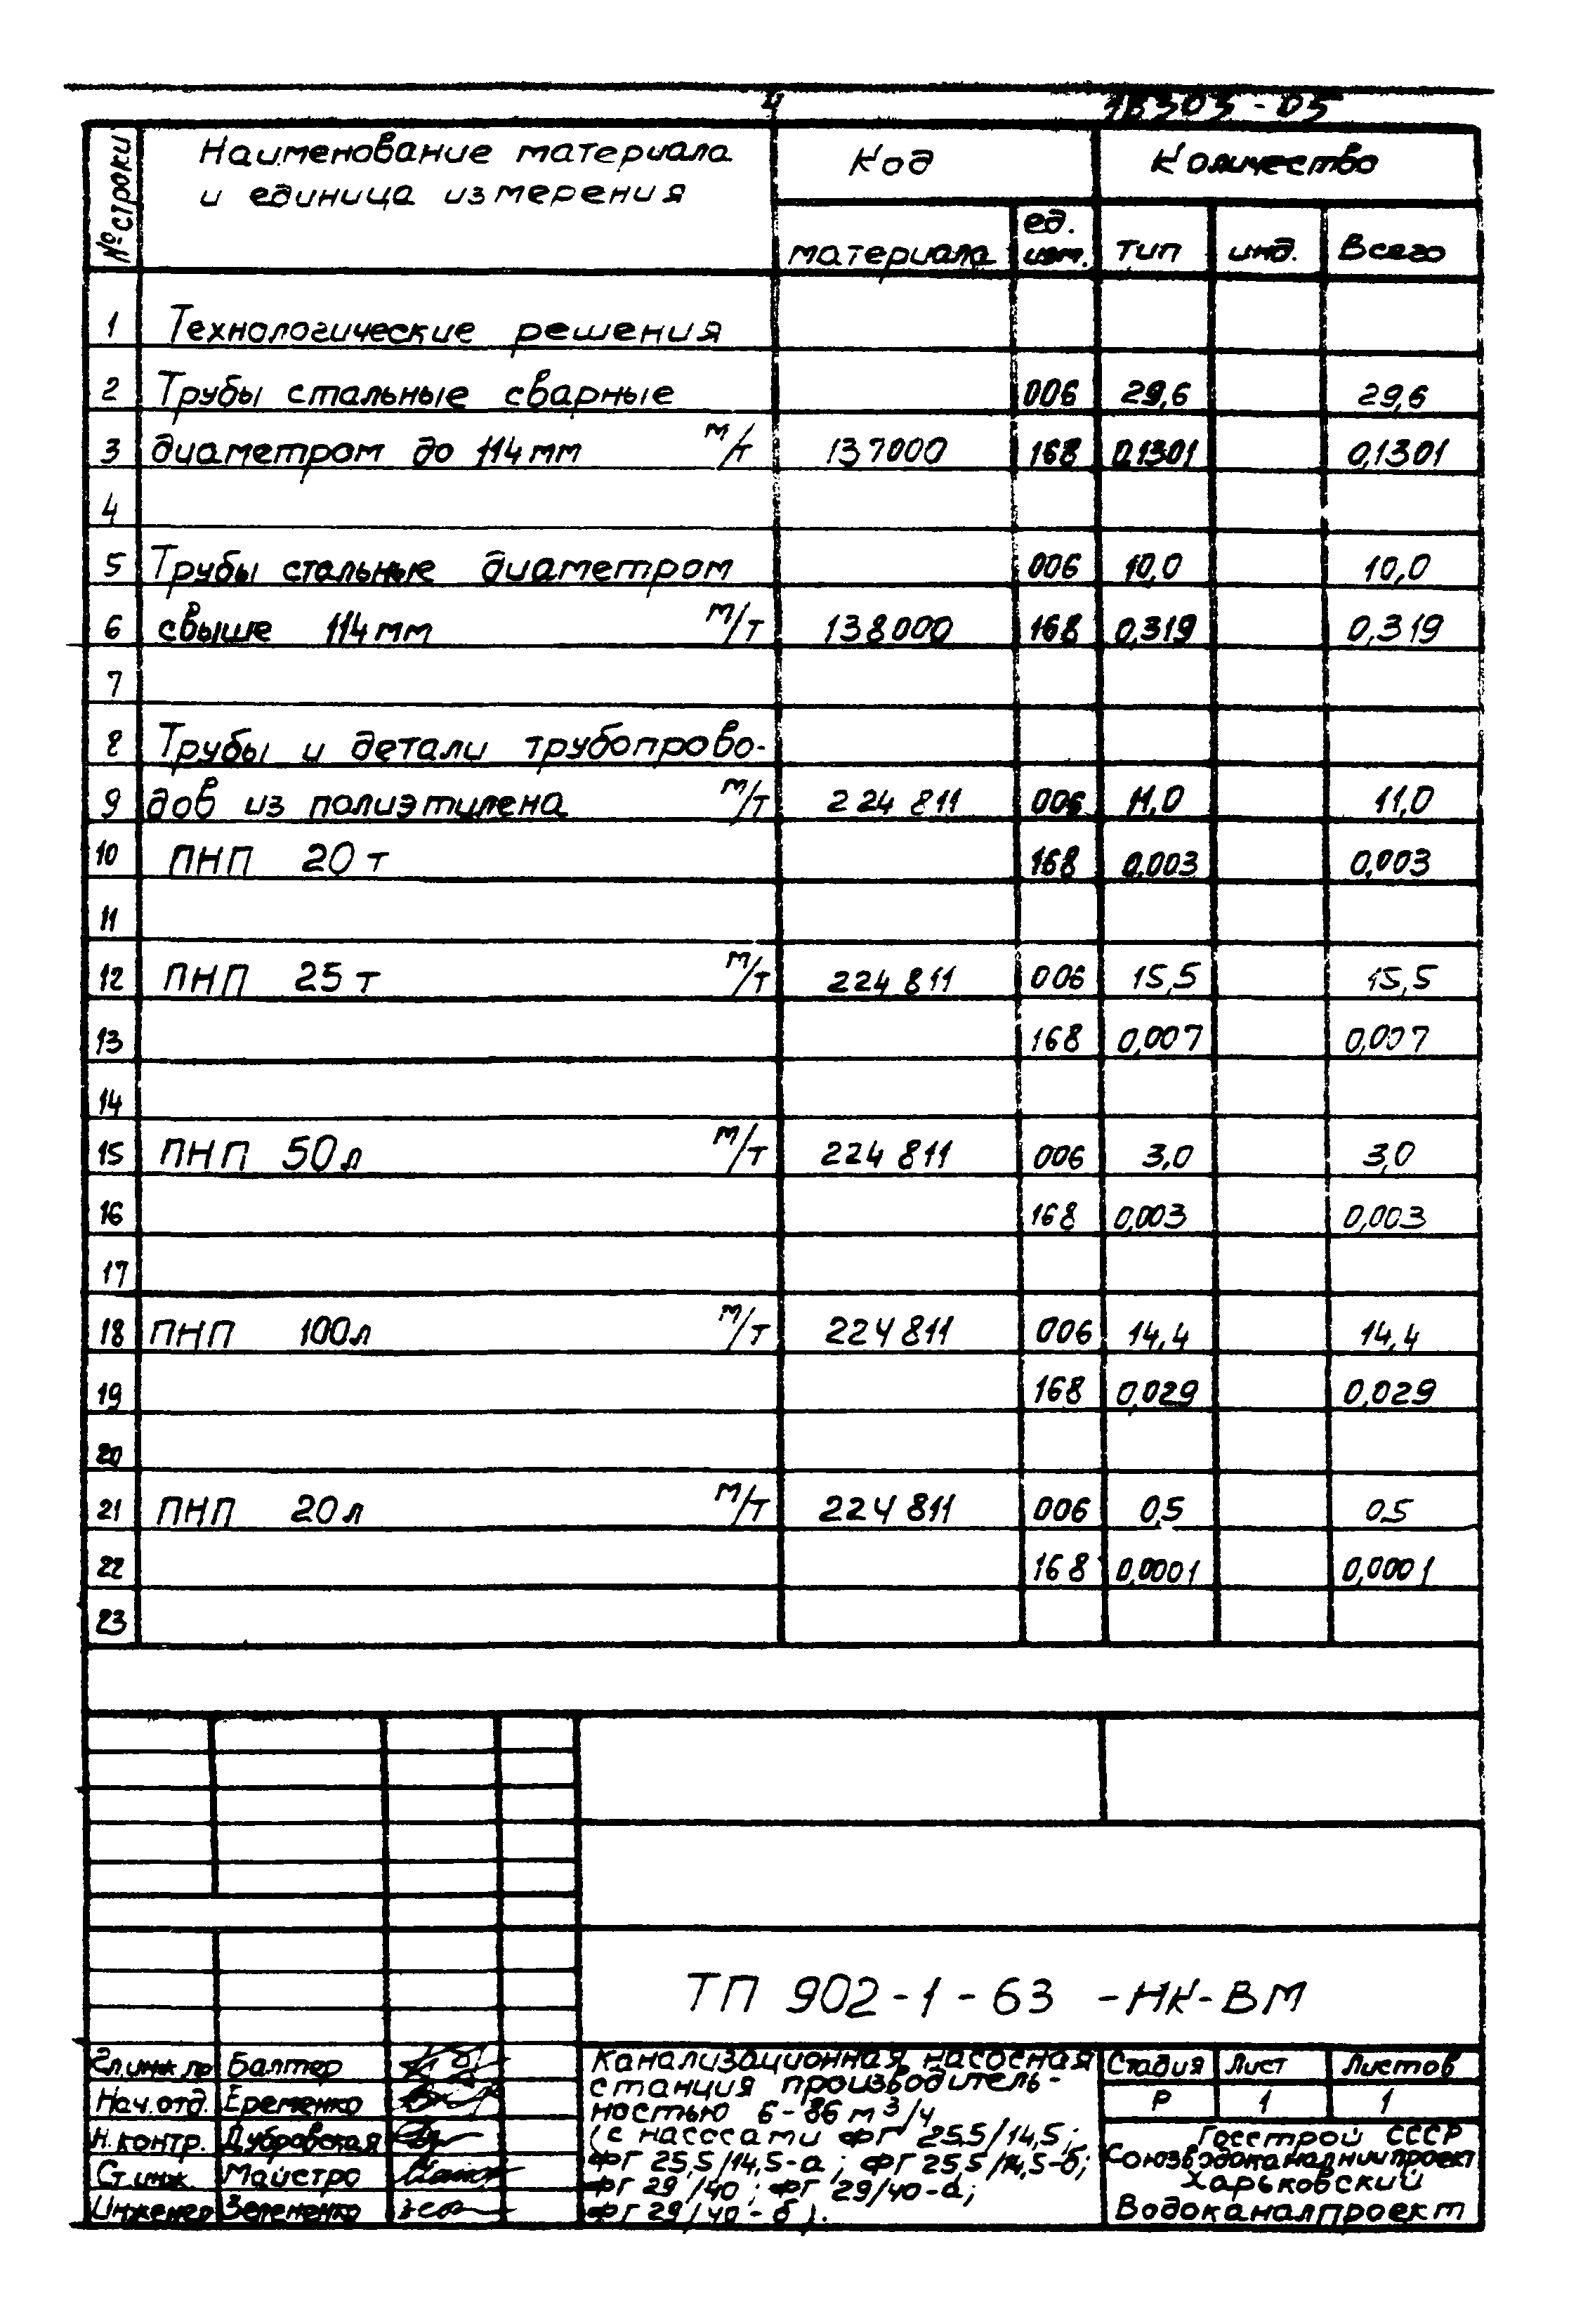 4 18303-05
№ строки Наименование материала и единица измерения Код Количество
материала ед. изм. тип инд. Всего
1 Технологические решения
2 Трубы стальные сварные 006 29,6 29,6
3 диаметром до 114 мм м/т 137000 168 0,1301 0,1301
4
5 Трубы стальные диаметром 006 10,0 10,0
6 свыше 114 мм м/т 138000 168 0,319 0,319
7
8 Трубы и детали трубопрово-
9 дов из полиэтилена м/т 224 811 006 11,0 11,0
10 ПНП 20 т 168 0,003 0,003
11
12 ПНП 25 т м/т 224 811 006 15,5 15,5
13 168 0,007 0,007
14
15 ПНП 50 л м/т 224 811 006 3,0 3,0
16 168 0,003 0,003
17
18 ПНП 100 л м/т 224 811 006 14,4 14,4
19 168 0,029 0,029
20
21 ПНП 20 л м/т 224 811 006 0,5 0,5
22 168 0,0001 0,0001
23
ТП 902-1-63 -НК-ВМ
Гл. инж. пр Балтер
Нач. отд. Еременко
Н. контр. Дубровская
Ст. инж. Майстро
Инженер Зелененко
Канализационная насосная
станция производитель-
ностью 6-86 м³/ч
(с насосами ФГ 25,5/14,5;
ФГ 25,5/14,5-а; ФГ 25,5/14,5-б;
ФГ 29/40; ФГ 29/40-а;
ФГ 29/40-б).
Стадия Лист Листов
Р 1 1
Госстрой СССР
Союзводоканалниипроект
Харьковский
Водоканалпроект